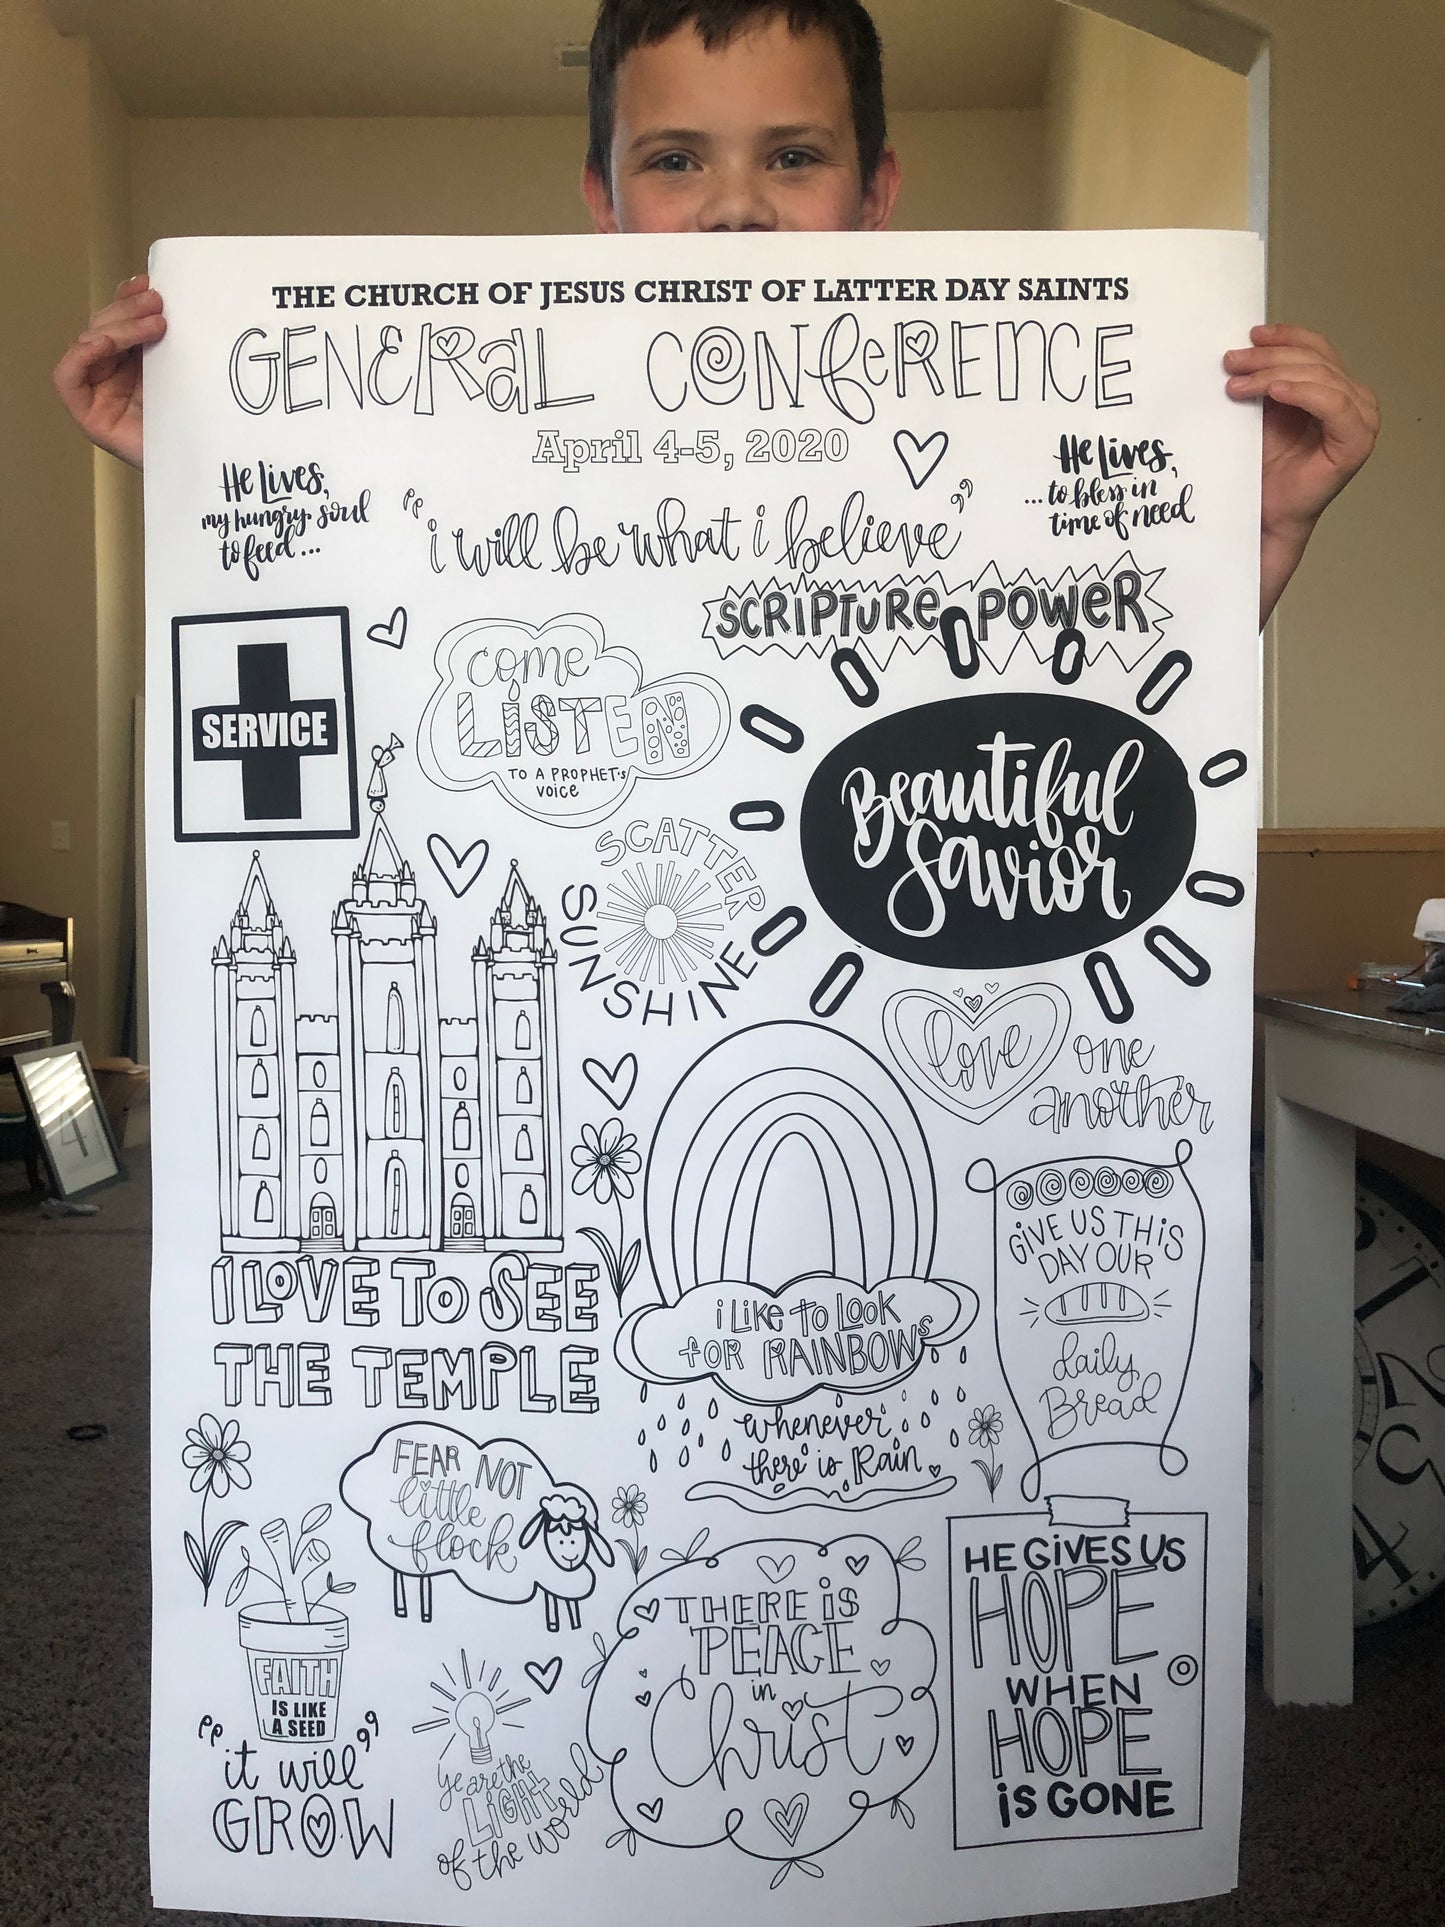 THE CHURCH OF JESUS CHRIST OF LATTER DAY SAINTS
GENERAL CONFERENCE
April 4-5, 2020
He Lives,
my hungry soul
to feed...
"i will be what i believe"
He Lives,
...to bless in
time of need
SCRIPTURE POWER
SERVICE
come
LiSTEN
TO A PROPHET's
voice
Beautiful
Savior
SCATTER
SUNSHINE
love one
another
I LOVE TO SEE
THE TEMPLE
i Like to Look
for RAINBOWs
whenever
there is Rain
GiVE US THiS
DAY OUR
daily
Bread
FEAR NOT
little
flock
FAITH
IS LIKE
A SEED
"it will"
GROW
ye are the
LIGHT
of the world
THERE iS
PEACE
in
Christ
HE GiVES US
HOPE
WHEN
HOPE
iS GONE